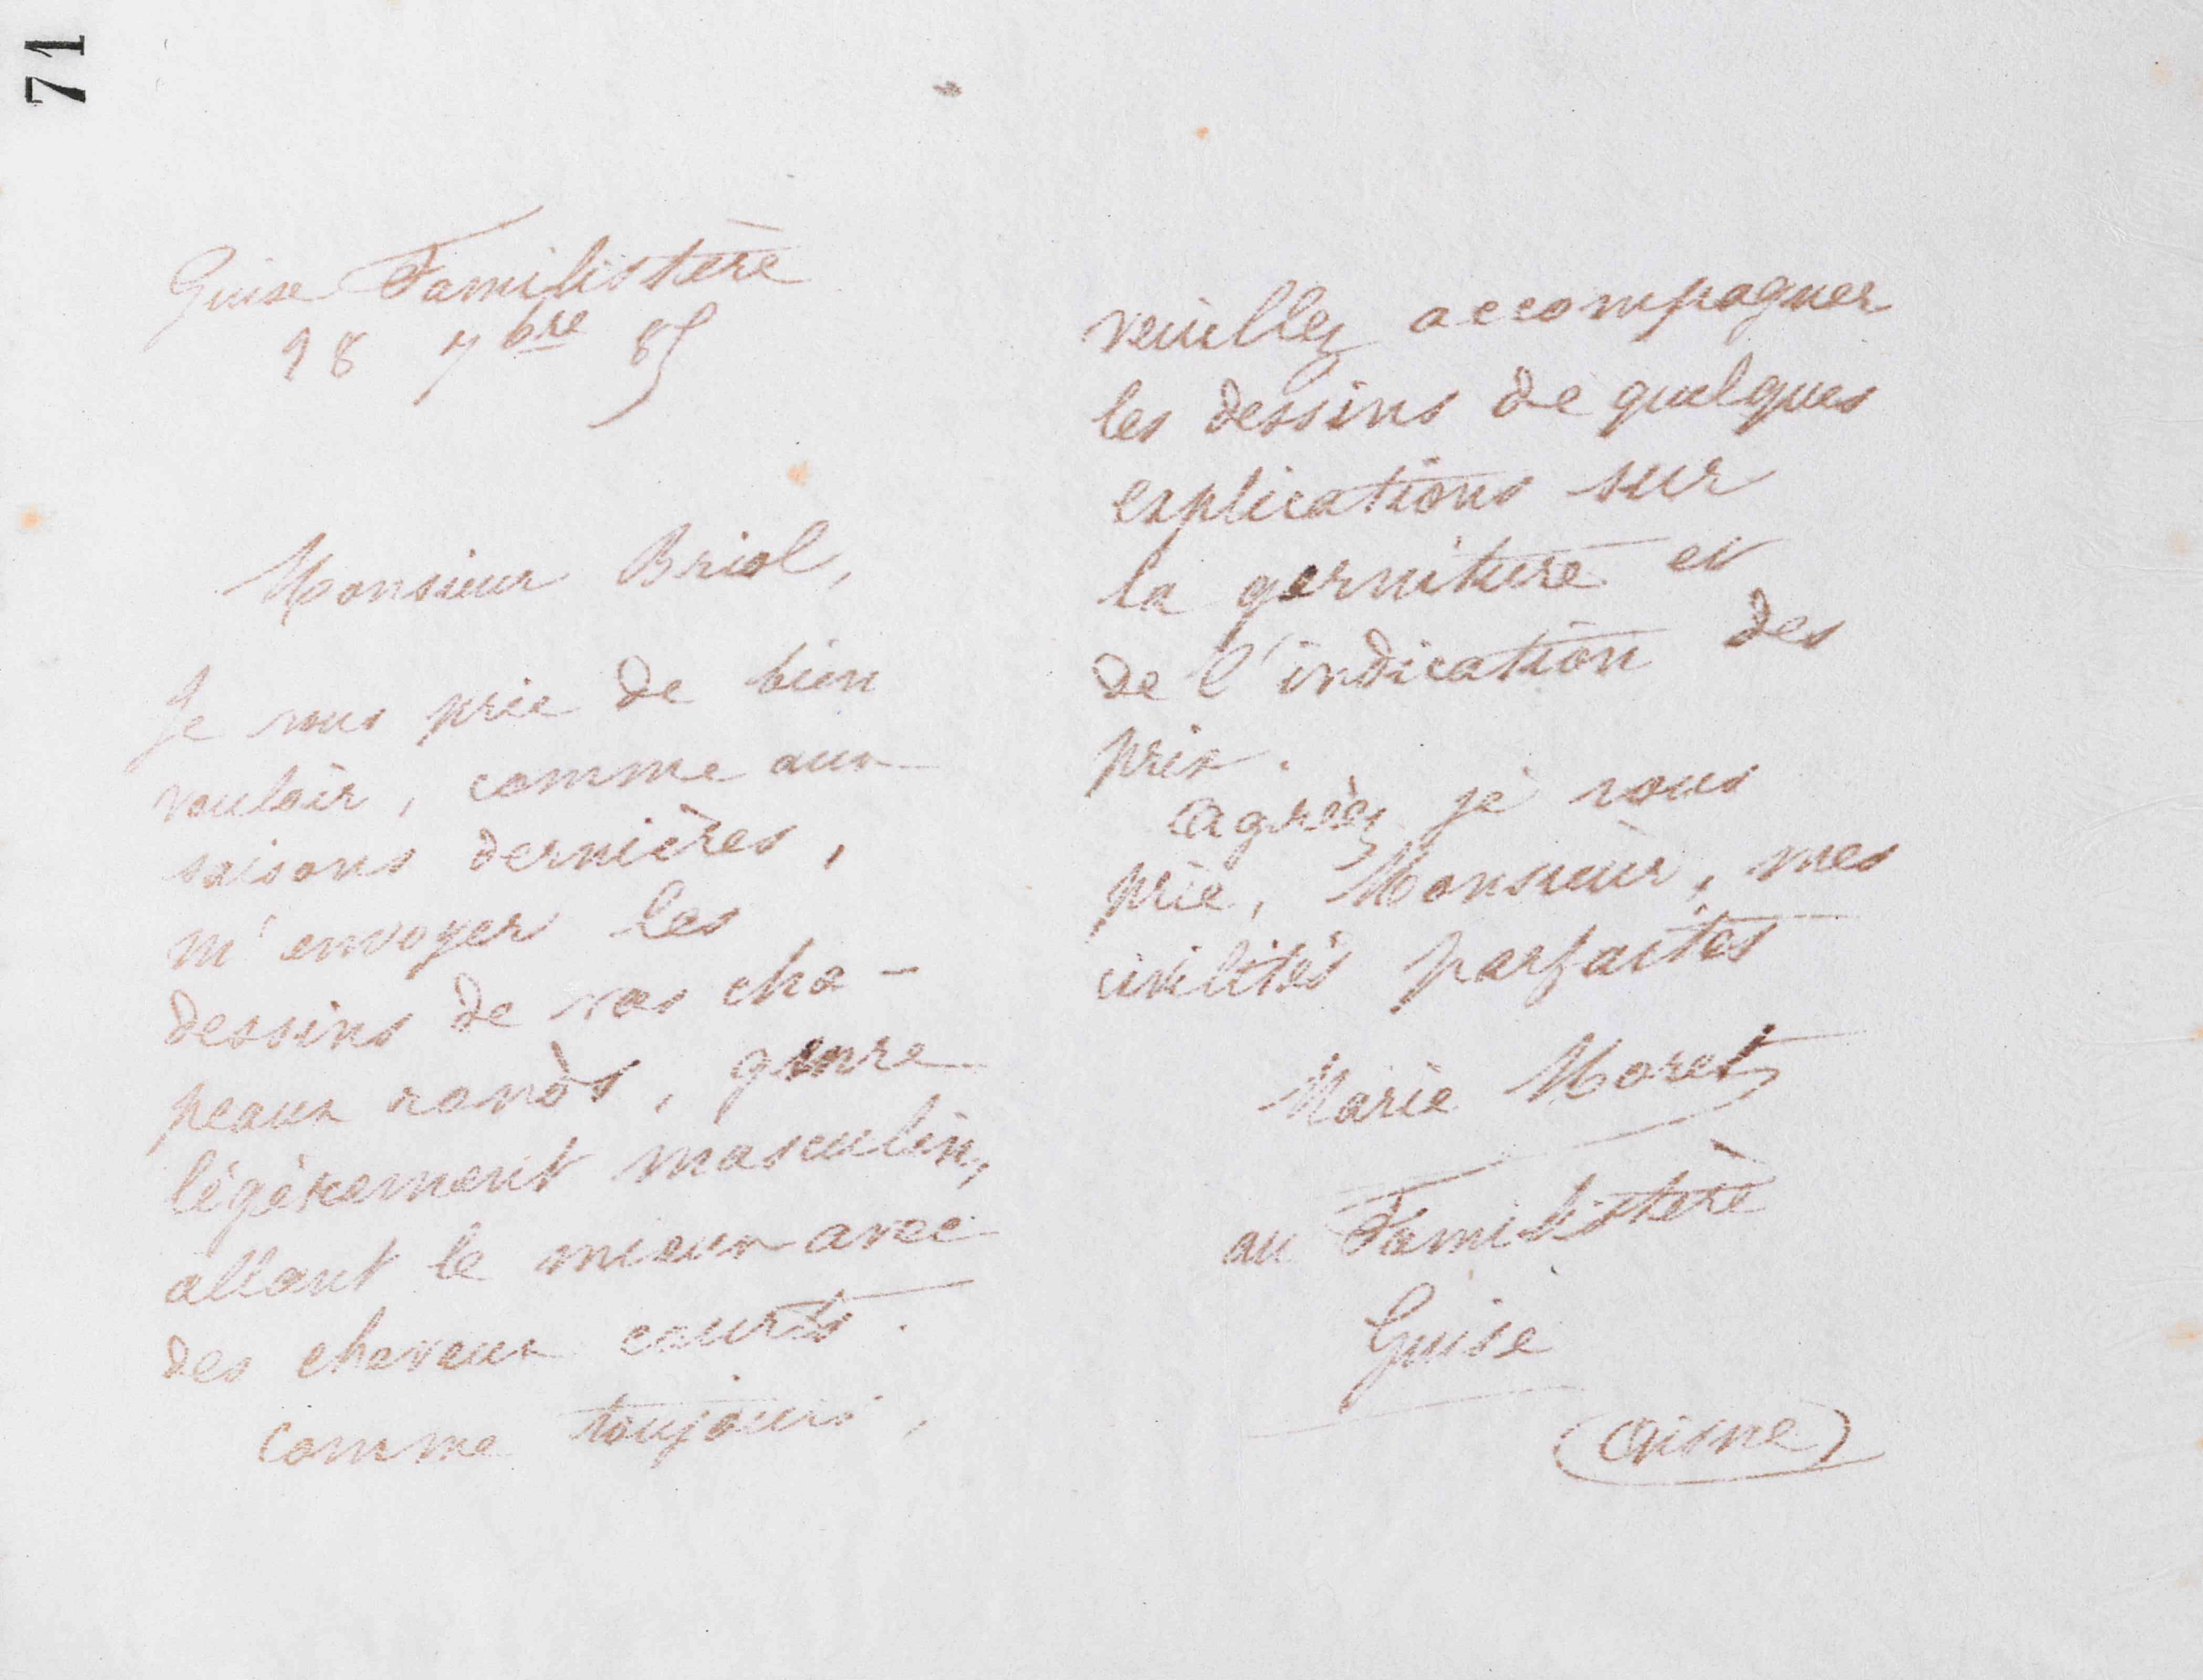 71
Guise Familistère
18 7bre 85
Monsieur Briol,
Je vous prie de bien
vouloir, comme aux
saisons dernières,
m'envoyer les
dessins de vos cha-
peaux ronds, genre
légèrement masculin,
allant le mieux avec
des cheveux courts.
Comme toujours,
veuillez accompagner
les dessins de quelques
explications sur
la garniture et
de l'indication des
prix.
Agréez je vous
prie, Monsieur, mes
civilités parfaites
Marie Moret
au Familistère
Guise
(Aisne)